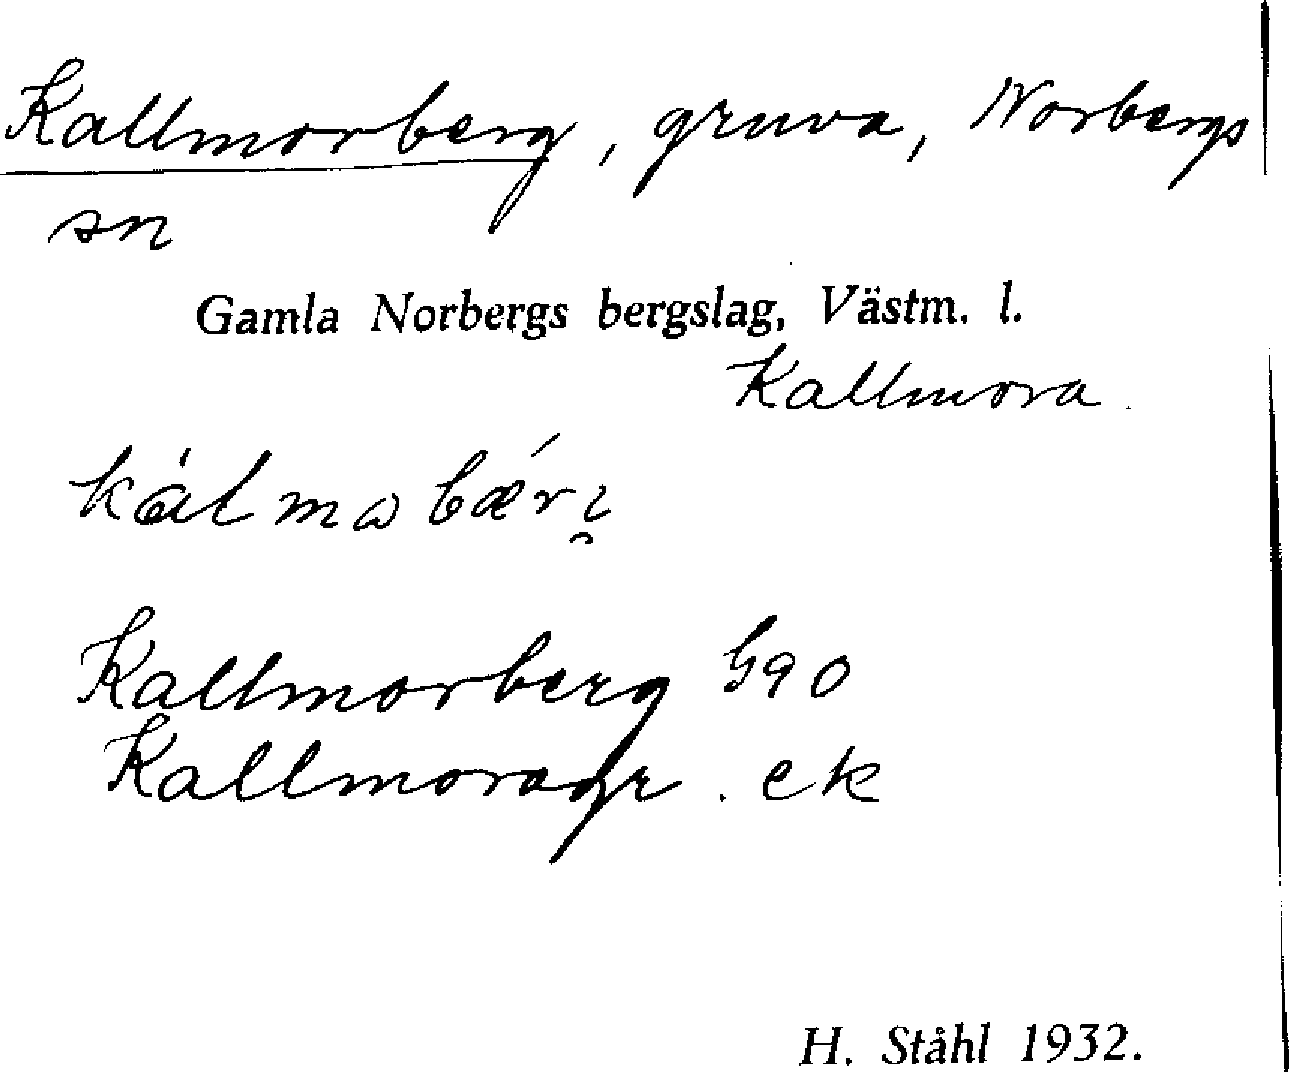 Kallmorberg, gruva, Norbergs
sn
Gamla Norbergs bergslag, Västm. l.
Kallmora
Kallmorberg G90
Kallmoragr. ek
H. Ståhl 1932.